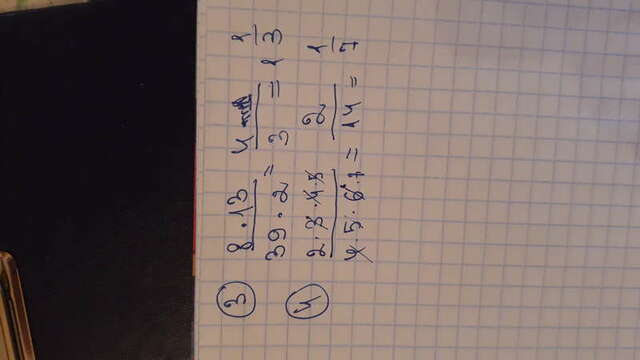 ③ 8 · 13 / 39 · 2 = 4 / 3 = 1 1/3
④ 2 · 3 · 4 · 5 / 4 · 5 · 6 · 7 = 2 / 14 = 1 / 7